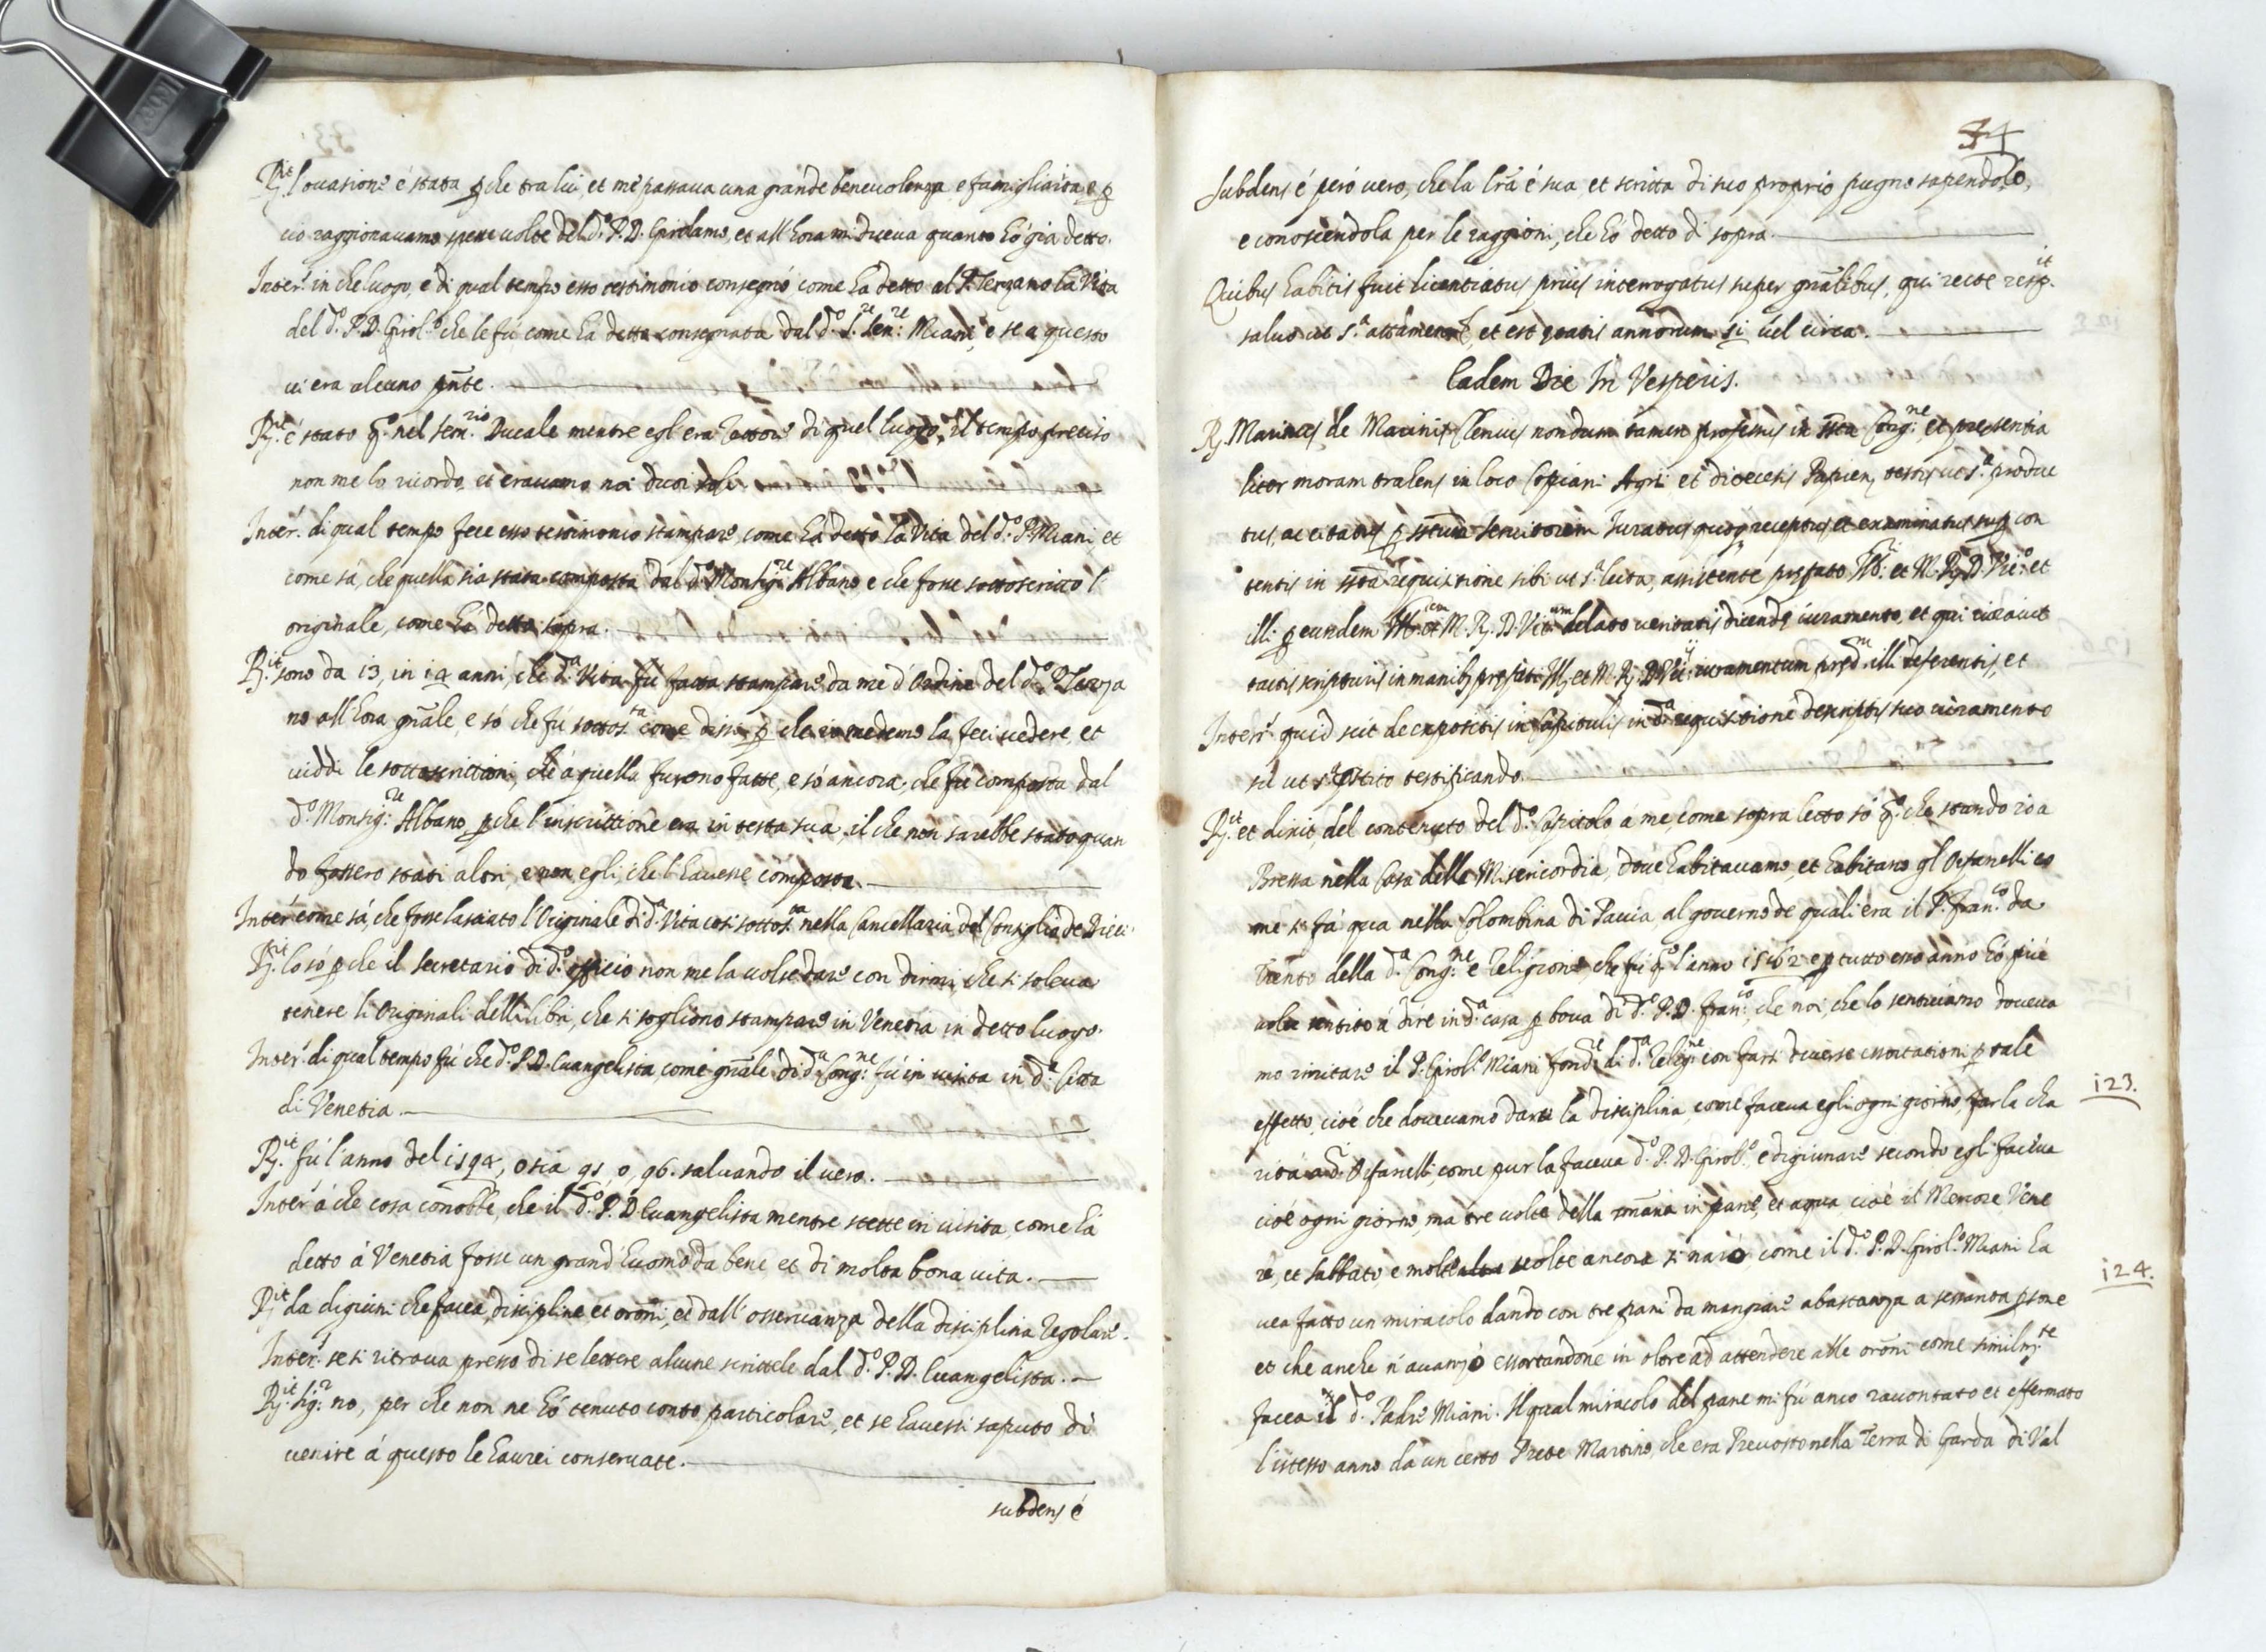 R.it l'ocasione è stata p che tra lui, et me passaua una grande beneuolenza, e famigliarita, e p
ciò raggionauamo spesse uolte del d.o P. D. Girolamo, et all'hora mi diceua quanto hò già detto.
Inter.s in che luogo, e di qual tempo esso testimonio consegnò come ha detto al P. Terzano la Vita
del d.o P. D. Girol.o che le fu come ha detto consegnata dal d.o S.re Sen.re Miani, e se a questo
ui era alcuno pnte.
R.it è stato q.o nel sem.rio Ducale mentre egl'era Rettore di quel luogo, il tempo preciso
non me lo ricordo, et erauamo noi duoi soli
Inter.s di qual tempo fece esso testimonio stampare, come ha detto la Vita del d.o P. Miani, et
come sà, che quella sia stata composta dal d.o Monsig.re Albano e che fosse sottoscritto l'
originale, come hà detto sopra.
R.it sono da 13, in 14 anni, che d.a Vita fu fatta stampare da me d'Ordine del d.o P. Terza
no all'hora gnale, e sò che fù sottos.ta come dissi p che io medemo la feci uedere, et
uiddi le sottoscrittioni, che à quella furono fatte, e sò ancora, che fù composta dal
d.o Monsig.re Albano p che l'inscrittione era in testa sua, il che non sarebbe stato quan
do fossero stati altri, e non egli, che l'hauesse composta.
Inter.s come sà, che fosse lasciato l'Originale di d.a Vita così sottos.ta nella Cancellaria del Consiglio de Dieci
R.it lo sò p che il secretario di d.o officio non me la uolse dare con dirmi, che si soleua
tenere li Originali delli libri, che si sogliono stampare in Venetia in detto luogo.
Inter.s di qual tempo fù che d.o P. D. Euangelista, come gnale di d.a Cong.ne fù in uisita in d.a Citta
di Venetia.
R.it fù l'anno del 1594, ò sia 95, ò, 96. saluando il uero.
Inter.s à che cosa conobbe, che il d.o P. D. Euangelista mentre stette in uisita, come hà
detto à Venetia fosse un grand'huomo da bene et di molta bona uita.
R.it da digiuni che facea, discipline et oroni, et dall'osseruanza della disciplina Regolare.
Inter.s se si ritroua presso di se lettere alcune scrittele dal d.o P. D. Euangelista.
R.it sig.r no, per che non ne hò tenuto conto particolare, et se hauessi saputo di
uenire à questo le haurei conseruate.
subdens é
34
subdens é però uero, che la lra è sua, et scritta di suo proprio pugno sapendolo,
e conoscendola per le raggioni, che hò detto di sopra.
Quibus habitis fuit licentiatus prius interrogatus super gnalibus, qui recte resp.it
saluo ut s.a attamen, et est etatis annorum 51 uel circa.
Eadem Die In Vesperis.
R. Marinus de Marinis Clericus nondum tamen professus in ista Cong.ne, et presentia
liter moram trahens in loco Copiani Agri et diœcesis Papien, testis ut s.a produc
tus, ac citatus p istum seruitorem Juratus quoq receptus et examinatus sup con
tentis in ista requisitione sibi ut s.a lecta, assistente prefato Ill. et M. R. D. Vic.o et
ill. p eundem Ill.em et M. R. D. Vic.um delato ueritatis dicende iuramento, et qui iurauit
tactis scripturis in manib prefati Ill. et M. R. D. Vic.ij iuramentum pred.m illi deferentis, et
Inter.s quid scit de expositis in Capitulis in d.a requisitione descriptis suo iuramento
sil ut s.a pstito testificando.
R.it et dixit, del contenuto del d.o Capitolo à me, come sopra letto sò q.o che stando io a
Bressa nella Casa della Misericordia, doue habitauamo, et habitano gl'Orfanelli co
me si fà qua nella Colombina di Pauia, al gouerno de quali era il P. Fran.co da
Trento della d.a Cong.ne e Religione, che fù q.o l'anno 1562 e p tutto esso anno hò piu
uolte sentito à dire in d.a casa p boca di d.o P. D. Fran.co, che noi, che lo sentiuamo doueua
mo imitare il P. Girol.o Miani fond.re di d.a Relig.ne con farsi diuerse essortationi p tale
effetto, cioè che doueuamo darsi la disciplina, come faceua egli ogni giorno, far la cha
rità a d.i Orfanelli, come pur la faceua d.o P. D. Girol.o, e digiunare secondo egl'faceua
cioè ogni giorno, ma tre uolte della smana in pane, et aqua cioè il Mercore Vene
re, et Sabbato, e molte uolte ancora si narò come il d.o P. D. Girol.o Miani ha
uea fatto un miracolo dando con tre pani da mangiare abastanza a sessanta psone
et che anche n'auanzò essortandone in oltre ad attendere alle oroni come similm.te
facea il d.o Padre Miani. Il qual miracolo del pane mi fù anco racontato et affermato
l'istesso anno da un certo Prete Martino, che era Preuosto nella Terra di Garda di Val
123.
124.